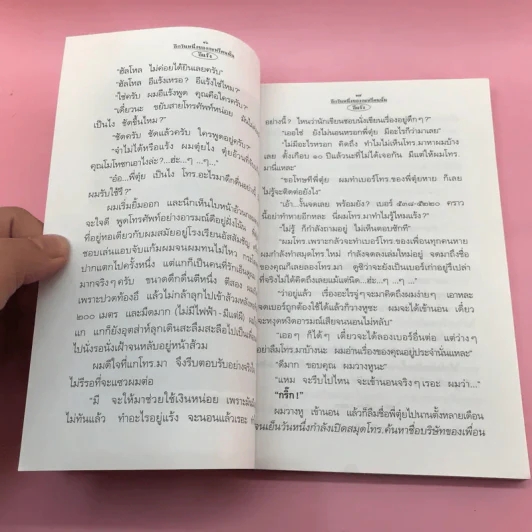 อีกวันหนึ่งของเปรียบเย็น
"ฮัลโหล ไม่ค่อยได้ยินเลยครับ"
"ฮัลโหล อีแร้งเหรอ? อีแร้งใช่ไหม?"
"ใช่ครับ ผมอีแร้งพูด คุณคือใครครับ?"
"เดี๋ยวนะ ขยับสายโทรศัพท์หน่อย
เป็นไง ชัดขึ้นไหม?"
"ชัดครับ ชัดแล้วครับ ใครพูดอยู่ครับ?"
"จำไม่ได้หรือแร้ง ผมตุ๋ยไง ตุ๋ยอ้วน
คุณโมโหชกเอาไงล่ะ?...ฮ่ะ...ๆ ...ๆ..."
"อ๋อ...พี่ตุ๋ย เป็นไง โทร.อะไรมาดึกดื่น
ผมรับใช้รึ?"
ผมเริ่มยิ้มออก และนึกเห็นใบหน้าอ้วน
จะใจดี พูดโทรศัพท์อย่างอารมณ์ดีอยู่
ที่อยู่หอเดียวกับผมสมัยอยู่โรงเรียนอัสสัมชัญ
ชอบเล่นแอบจับแก้มผมจนผมทนไม่ไหว
ปากแตกไปครั้งหนึ่ง แต่แกก็เป็นคนที่รัก
มากจริงๆ ครับ ขนาดดึกดื่นตีหนึ่ง ตีสอง
เพราะปวดท้องอึ๊ แล้วไม่กล้าลุกไปเข้าส้วม
๒๐๐ เมตร และมืดมาก (ไม่มีไฟฟ้า-มีแต่ผี)
แก แกก็ยังอุตส่าห์ลุกเดินสะลึมสะลือไปเป็น
ไปนั่งรอนั่งเฝ้าจนหลับอยู่หน้าส้วม
ผมดีใจที่แกโทร.มา จึงรีบตอบรับอย่าง
ไม่รีรอที่จะแซวผมต่อ
"มี จะให้มาช่วยใช้เงินหน่อย เพราะ
ไม่ทันแล้ว ทำอะไรอยู่แร้ง จะนอนแล้วเรอะ
อย่างนี้? ไหนว่านักเขียนชอบนั่งเขียนเรื่องอยู่ดึกๆ?"
"เออใช่ ยังไม่นอนหรอกพี่ตุ๋ย มีอะไรก็ว่ามาเลย"
"ไม่มีอะไรหรอก คิดถึง ทำไมไม่เห็นโทร.มาหาผมบ้าง
เลย ตั้งเกือบ ๑๐ ปีแล้วนะที่ไม่ได้เจอกัน มีแต่ให้ผมโทร.
มานี่แหละ"
"ขอโทษทีพี่ตุ๋ย ผมทำเบอร์โทร.ของพี่ตุ๋ยหาย ก็เลย
ไม่รู้จะติดต่อยังไง"
"เอ้า...งั้นจดเลย พร้อมยัง? เบอร์ คราว
นี้อย่าทำหายอีกหละ นี่ผมโทร.มาทำไมรู้ไหมแร้ง?"
"ไม่รู้ ก็กำลังถามอยู่ ไม่เห็นตอบซักที"
"ผมโทร.เพราะกลัวจะทำเบอร์โทร.ของเพื่อนทุกคนหาย
ผมกำลังทำสมุดโทร.ใหม่ กำลังจดลงเล่มใหม่อยู่ จดมาถึงชื่อ
ของคุณก็เลยลองโทร.มา ดูซิว่าจะยังเป็นเบอร์เก่าอยู่รึเปล่า
ที่จริงไม่ได้คิดถึงเลยแม้แต่นิด...ฮ่ะ...ๆ ...ๆ..."
"ว่าอยู่แล้ว เรื่องอะไรจู่ๆ จะมาคิดถึงผมง่ายๆ เอาหละ
จดเบอร์ถูกต้องใช้ได้แล้วก็วางหูซะ ผมจะได้เข้านอน เดี๋ยว
จะหงุดหงิดอารมณ์เสียจนนอนไม่หลับ"
"เออๆ ก็ได้ๆ เดี๋ยวจะได้ลองเบอร์อื่นต่อ แต่ว่างๆ
อย่าลืมโทร.มาบ้างนะ ผมอ่านเรื่องของคุณอยู่ประจำนั่นแหละ"
"ดีมาก ขอบคุณ ผมวางหูนะ"
"แหม จะรีบไปไหน จะเข้านอนจริงๆ เรอะ ผมว่า..."
"กริ๊ก!"
ผมวางหู เข้านอน แล้วก็ลืมชื่อพี่ตุ๋ยไปนานตั้งหลายเดือน
จนเย็นวันหนึ่งกำลังเปิดสมุดโทร.ค้นหาชื่อบริษัทของเพื่อน